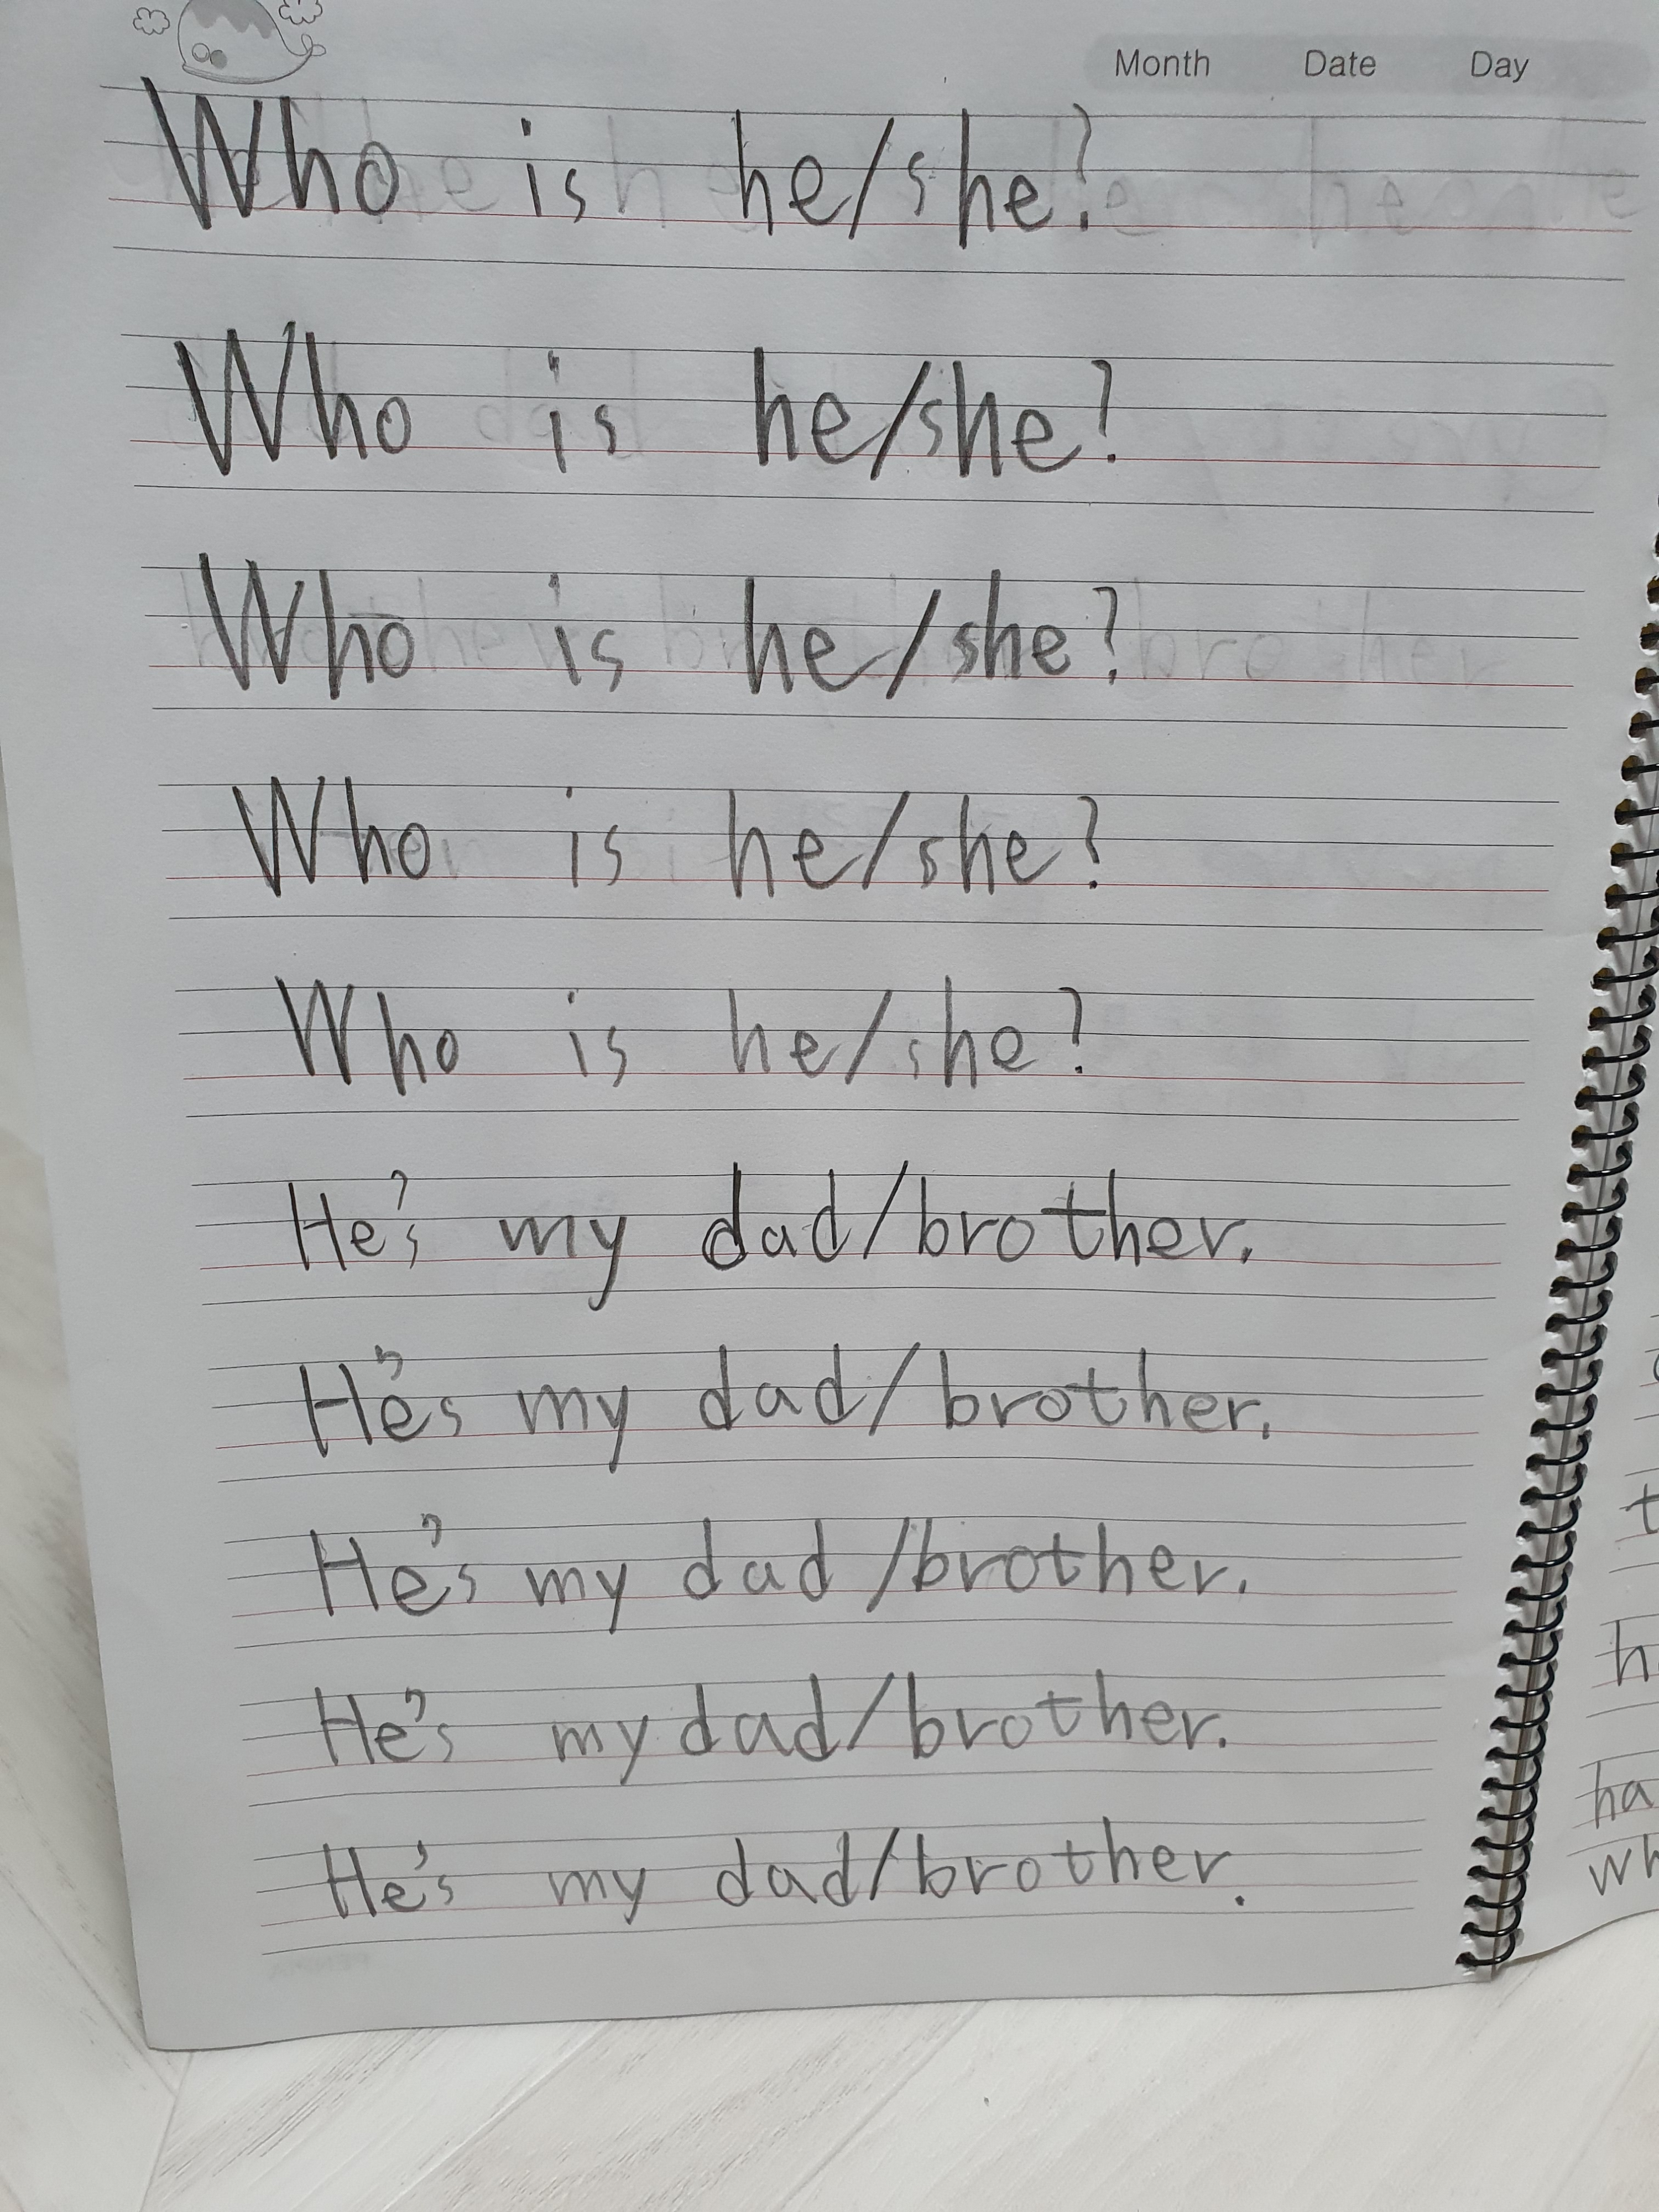 Month Date Day
Who is he/she?
Who is he/she?
Who is he/she?
Who is he/she?
Who is he/she?
He's my dad/brother.
He's my dad/brother.
He's my dad /brother.
He's my dad/brother.
He's my dad/brother.